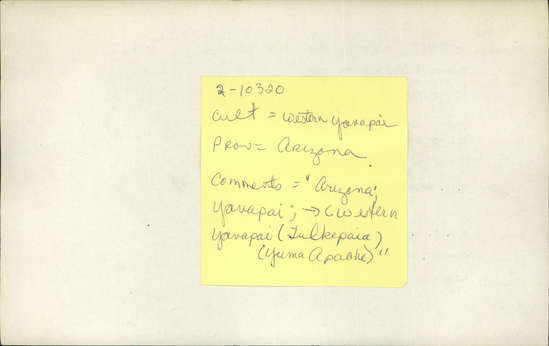 2-10320
Cult = Western Yavapai
Prov = Arizona
Comments = "Arizona;
Yavapai; → (Western
Yavapai (Tulkepaia)
(Yuma Apache)"